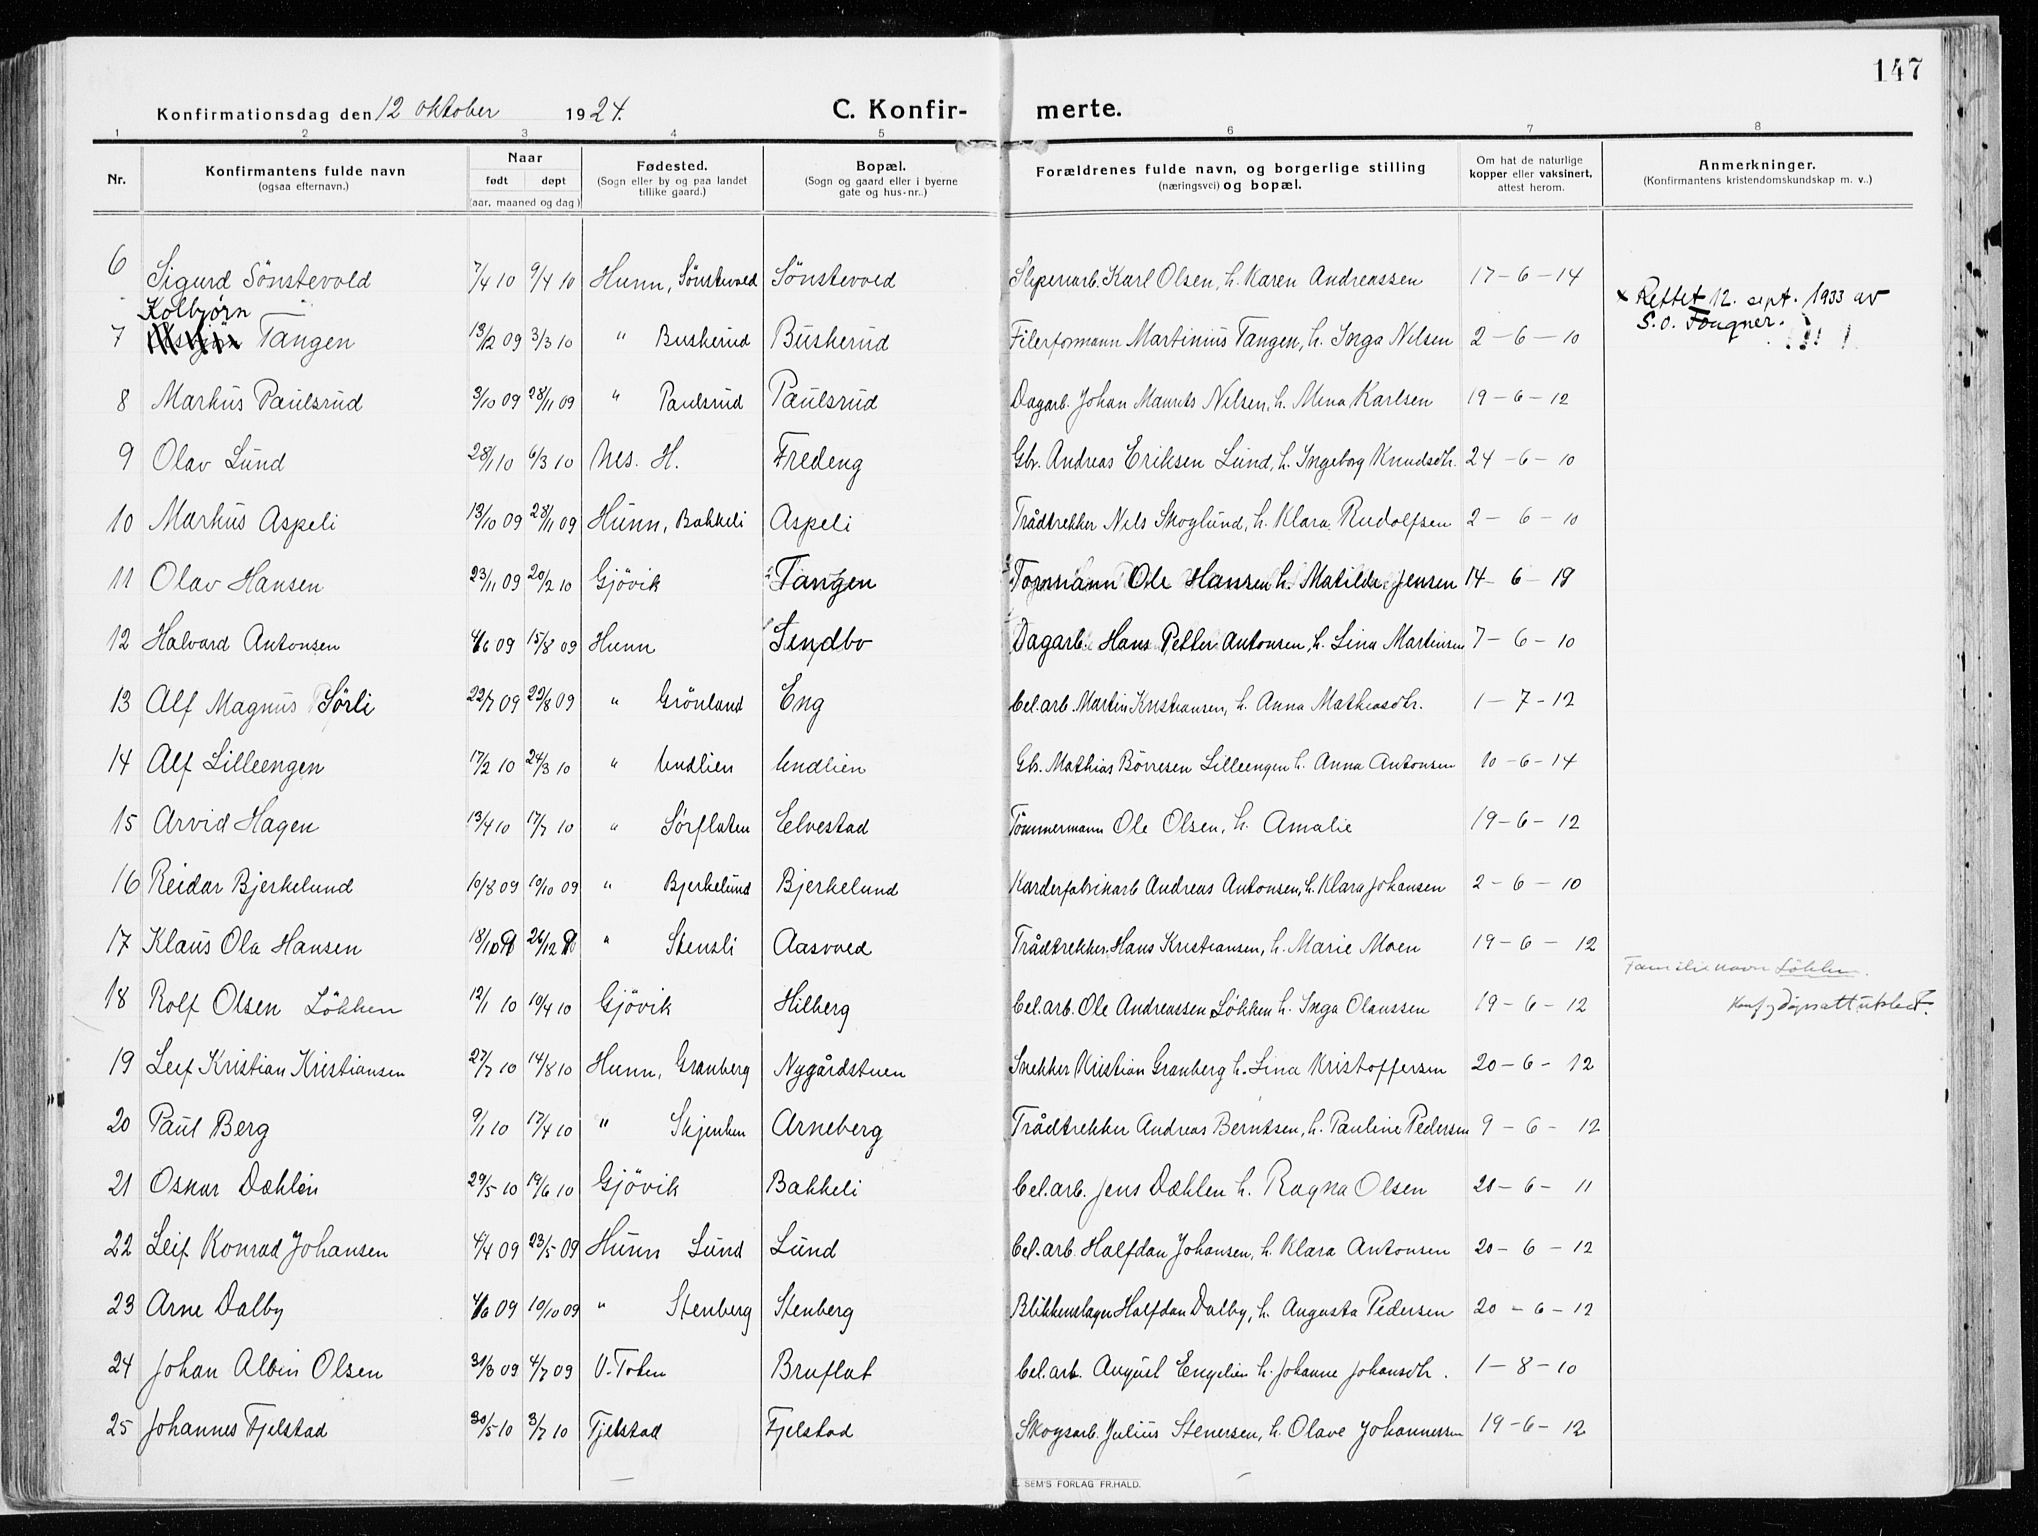 147
Konfirmationsdag den 12 oktober 1924. C. Konfir- merte.
1 2 3 4 5 6 7 8
Nr. Konfirmantens fulde navn (ogsaa efternavn.) Naar født døpt (aar, maaned og dag) Fødested. (Sogn eller by og paa landet tillike gaard.) Bopæl. (Sogn og gaard eller i byerne gate og hus-nr.) Forældrenes fulde navn, og borgerlige stilling (næringsvei) og bopæl. Om hat de naturlige kopper eller vaksinert, attest herom. Anmerkninger. (Konfirmantens kristendomskundskap m. v.)
6 Sigurd Sönstevold 7/4 10 9/4 10 Hunn, Sönstevold Sönstevold Sliperiarb. Karl Olsen, h. Karen Andreassen 17-6-14
x Rettet 12. sept. 1933 av
S.O. Fougner.
Kolbjørn
7 Tangen 13/12 09 3/3 10 " Buskerud Buskerud Filerformann Martinius Tangen, h. Inga Nilsen 2-6-10
8 Markus Paulsrud 3/10 09 28/11 09 " Paulsrud Paulsrud Dagarb. Johan Maurits Nilsen, h. Mina Karlsen 19-6-12
9 Olav Lund 28/1 10 6/3 10 Nes. H. Fredeng Gbr. Andreas Eriksen Lund, h. Ingeborg Knudsdtr. 24-6-10
10 Markus Aspeli 13/10 09 28/11 09 Hunn, Bakkeli Aspeli Trådtrekker Nils Skoglund, h. Klara Rudolfsen 2-6-10
11 Olav Hansen 23/11 09 20/2 10 Gjövik Tangen Ole Hansen h. Matilde Jensen 14-6-19
12 Halvard Antonsen 4/6 09 15/8 09 Hunn Sindbo Dagarb. Hans Petter Antonsen, h. Lina Martinsen 7-6-10
13 Alf Magnus Sörli 22/7 09 22/8 09 " Grönland Eng Cel.arb. Martin Kristiansen, h. Anna Mathiasdtr. 1-7-12
14 Alf Lilleengen 17/2 10 24/3 10 " Undlien Undlien Gb. Mathias Börresen Lilleengen h. Anna Antonsen 10-6-14
15 Arvid Hagen 13/4 10 17/7 10 " Sörflaten Elvestad Tömmermann Ole Olsen, h. Amalie 19-6-12
16 Reidar Bjerkelund 10/8 09 10/10 09 " Bjerkelund Bjerkelund Karderfabrikarb Andreas Antonsen, h. Klara Johansen 2-6-10
17 Klaus Ola Hansen 18/10 09 26/12 09 " Stensli Aasvold Trådtrekker Hans Kristiansen, h. Marie Moen 19-6-12
Familienavn Løkken.
18 Rolf Olsen Lökken 12/1 10 10/4 10 Gjövik Hilberg Cel.arb. Ole Andreassen Lökken h. Inga Olaussen 19-6-12
19 Leif Kristian Kristiansen 27/7 10 14/8 10 Hunn, Granberg Nygårdstuen Snekker Kristian Granberg h. Lina Kristoffersen 20-6-12
20 Paul Berg 9/1 10 17/4 10 " Skjerken Arneberg Trådtrekker Andreas Berntsen, h. Pauline Pedersen 9-6-12
21 Oskar Dæhlen 29/5 10 19/6 10 Gjövik Bakkeli Cel.arb. Jens Dæhlen h. Ragna Olsen 20-6-11
22 Leif Konrad Johansen 4/4 09 23/5 09 Hunn Lund Lund Cel.arb. Halfdan Johansen, h. Klara Antonsen 20-6-12
23 Arne Dalby 4/6 09 10/10 09 " Stenberg Stenberg Blikkenslager Halfdan Dalby, h. Augusta Pedersen 20-6-12
24 Johan Albin Olsen 31/3 09 4/7 09 V. Toten Bruflat Cel.arb. August Engelien h. Johanne Johansdtr. 1-8-10
25 Johannes Fjelstad 30/5 10 3/7 10 Fjelstad Fjelstad Skogsarb. Julius Stenersen, h. Olave Johannessen 19-6-12
E. SEM'S FORLAG FR.HALD.